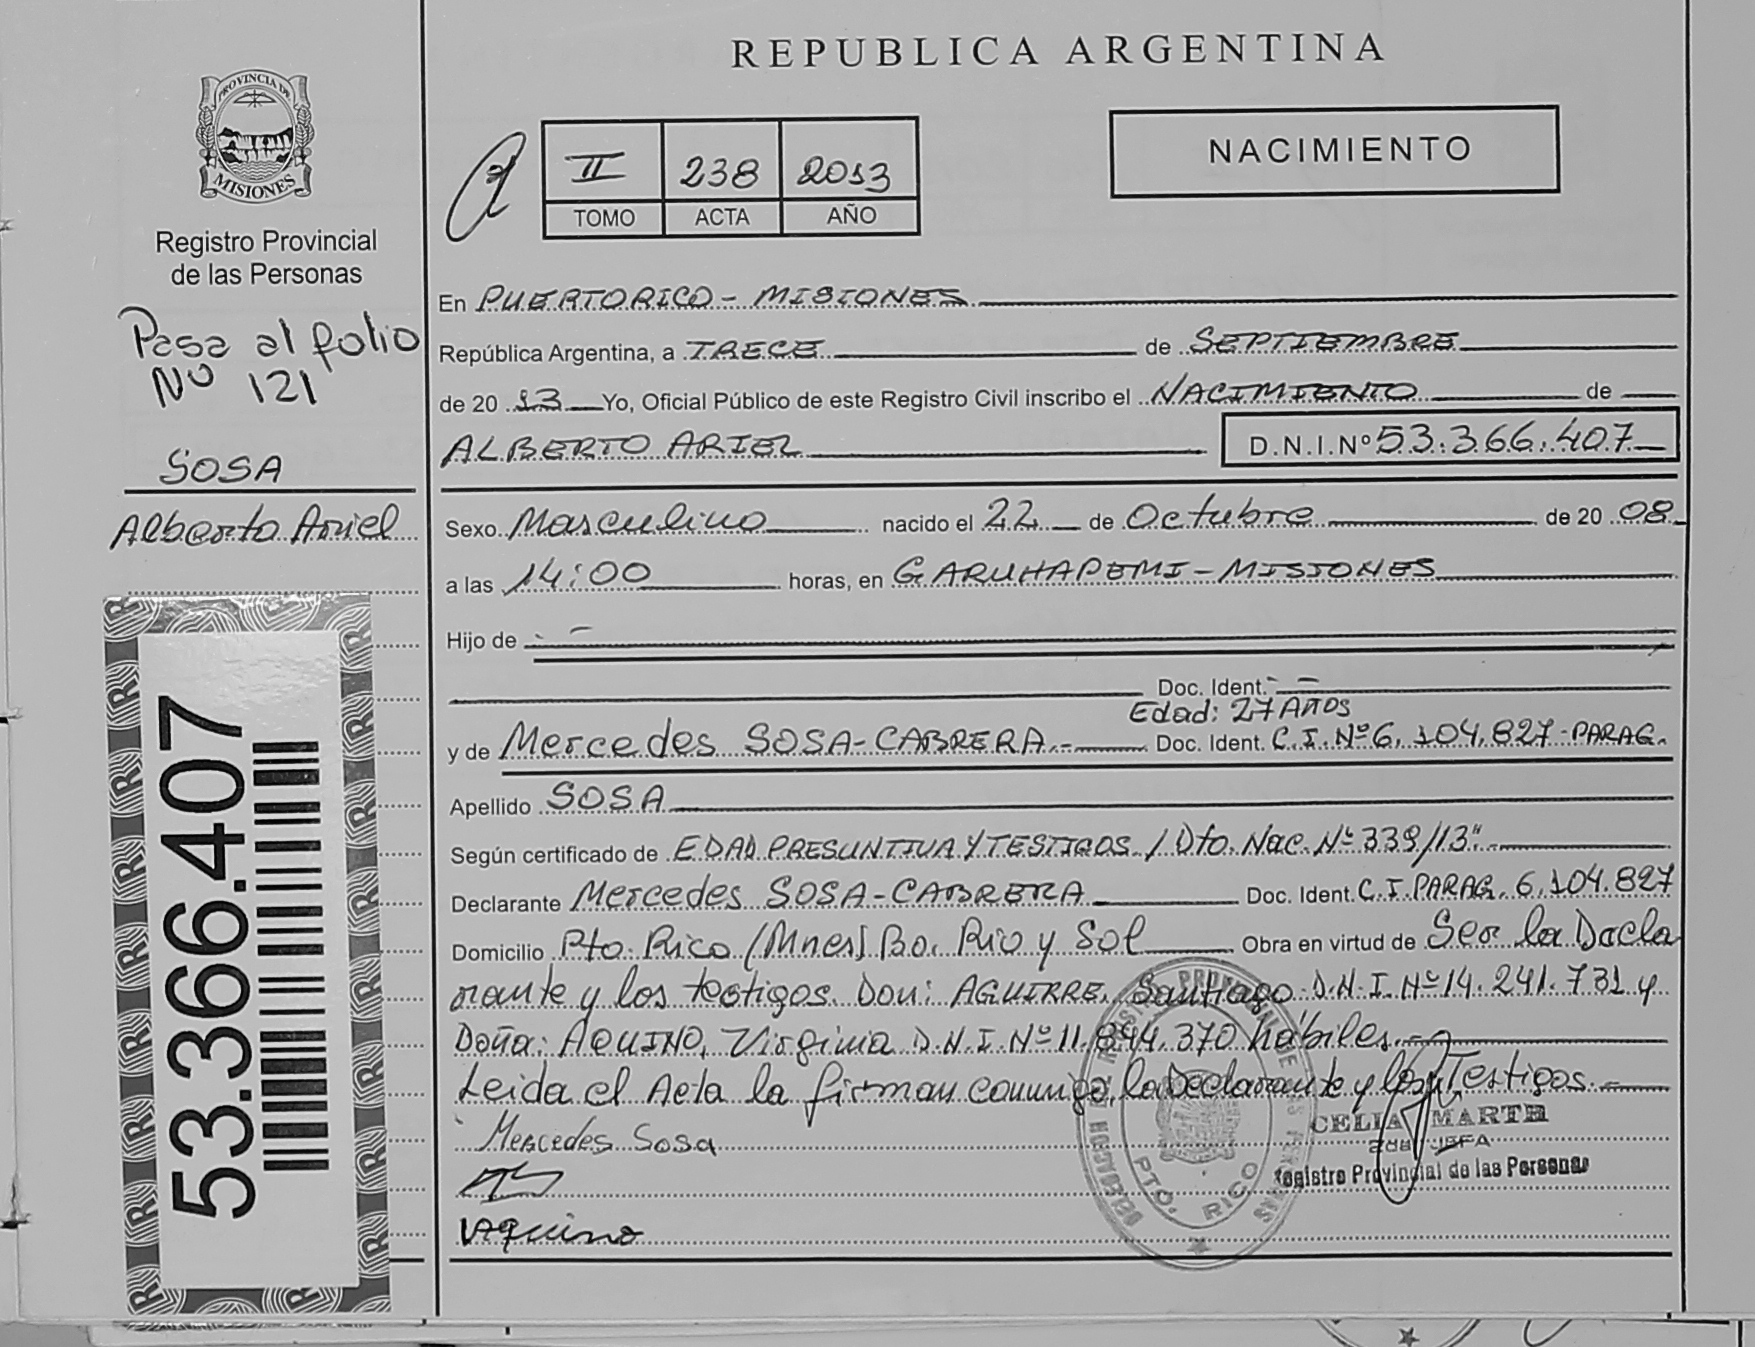 REPUBLICA ARGENTINA
PROVINCIA DE
MISIONES
Registro Provincial
de las Personas
II 238 2013
TOMO ACTA AÑO
NACIMIENTO
Pasa al folio
Nº 121
SOSA
Alberto Ariel
53.366.407
En PUERTO RICO - MISIONES
República Argentina, a TRECE de SEPTIEMBRE
de 20 13 Yo, Oficial Público de este Registro Civil inscribo el NACIMIENTO de
ALBERTO ARIEL D.N.I.Nº 53.366.407
Sexo Masculino nacido el 22 de Octubre de 20 08
a las 14:00 horas, en GARUHAPEMI - MISIONES
Hijo de
Doc. Ident.
Edad: 27 AÑOS
y de Mercedes SOSA-CABRERA.- Doc. Ident. C.I.Nº 6.104.827-PARAG.
Apellido SOSA
Según certificado de EDAD PRESUNTIVA Y TESTIGOS / Dto. Nac. Nº 339/13"
Declarante Mercedes SOSA-CABRERA Doc. Ident. C.I.PARAG. 6.104.827
Domicilio Pto. Rico (Mnes) Bo. Rio y Sol Obra en virtud de Ser la Decla
rante y los testigos Don: AGUIRRE, Santiago D.N.I. Nº 14.241.731 y
Doña: AQUINO, Virginia D.N.I. Nº 11.844.370 hábiles.-
Leida el Acta la firman conmigo, la Declarante y los Testigos.-
Mercedes Sosa
CELIA MARTH
Registro Provincial de las Personas
VAquino
PTO. RICO